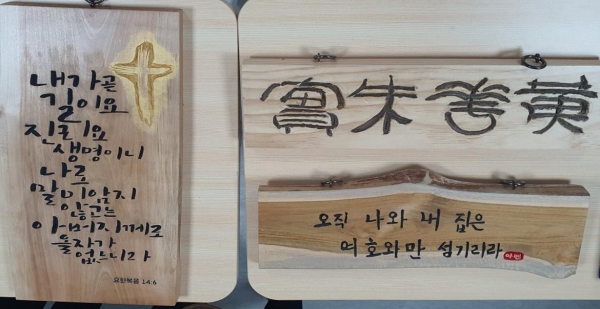 내가곧
길이요
진리요
생명이니
나로
말미암지
않고는
아버지께로
올자가
없느니라
요한복음 14:6
實朱 黃
오직 나와 내 집은
여호와만 섬기리라